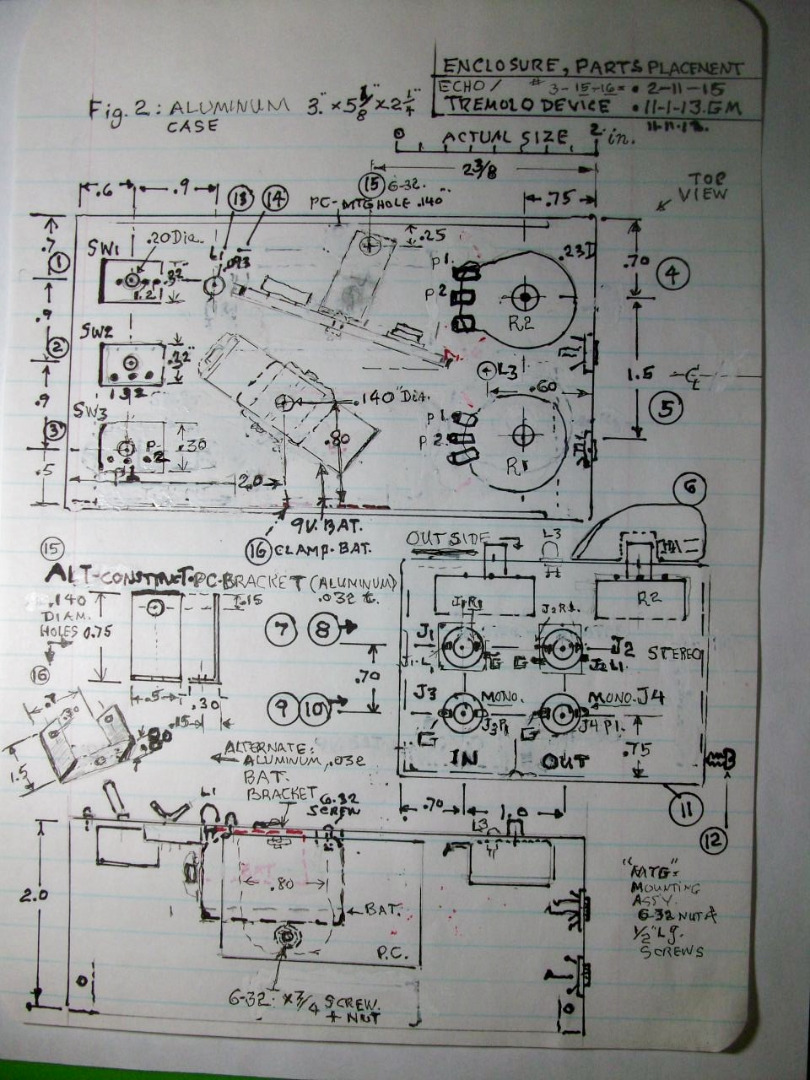 ENCLOSURE, PARTS PLACEMENT
ECHO/ # 3-15-16= • 2-11-15
TREMOLO DEVICE • 11-1-13.GM
Fig. 2: ALUMINUM 3." x 5 1/8" x 2 1/4"
CASE
0 ACTUAL SIZE 2 in.
2 3/8
TOP
VIEW
.6
.9
13
14
15 6-32.
PC-MTG HOLE .140"
.75
.25
.7
1
SW1
.20 Dia.
L1
.093
.32
P1.
P2
R2
.23D
.70
4
.9
2
SW2
.22"
L3
.60
1.5
CL
5
.140" DIA.
.9
SW3
3
.30
.80
P1.
P2.
R1
.5
2.0
9V. BAT.
16 CLAMP-BAT.
6
OUTSIDE
L3
R2
15
ALT-CONSTRUCT•PC-BRACKET (ALUMINUM)
.032 t.
.140
DIAM.
HOLES 0.75
.15
7 8
.70
.5
.30
.15
9 10
J1
J1R1
J2R1.
J2
STEREO
J1-L1
G
G
J2L1.
J3
MONO.
MONO. J4
G
J3P1
G
J4 P1.
IN
OUT
.75
.70
1.0
11
12
16
.80
1.5
ALTERNATE:
ALUMINUM, .032
BAT.
BRACKET
L1
6-32
SCREW
L3
2.0
.80
BAT.
P.C.
6-32: x 3/4 SCREW
+ NUT
"MTG"=
MOUNTING
ASSY.
6-32 NUT &
1/2" Lg.
SCREWS